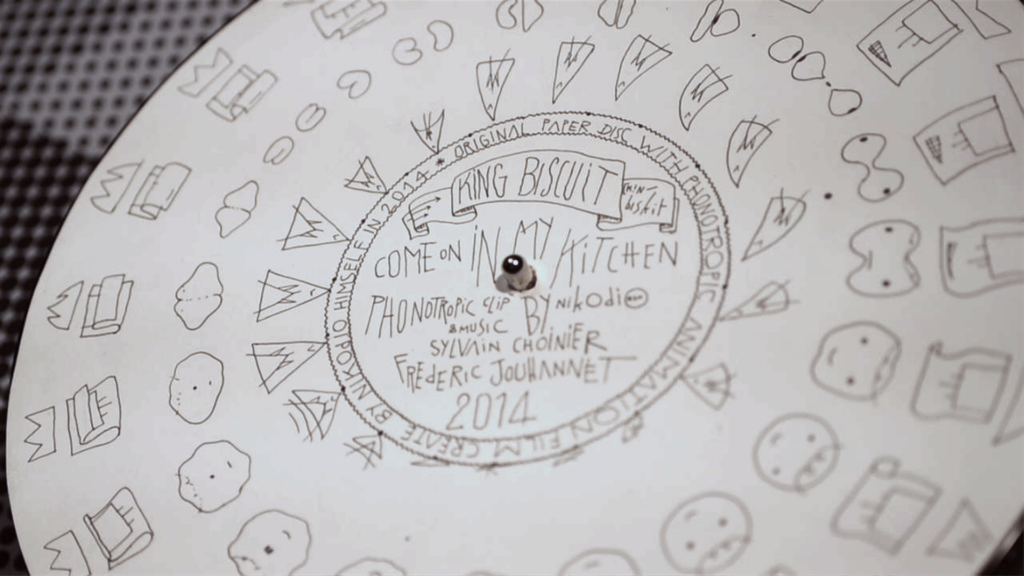 * ORIGINAL PAPER DISC WITH PHONOTROPIC ANIMATION FILM CREATE BY NIKODIO HIMSELF IN 2014
KING BISCUIT
COME ON IN MY KITCHEN
PHONOTROPIC CLIP BY NIKODIO
& MUSIC
SYLVAIN CHOINIER
FREDERIC JOUHANNET
2014